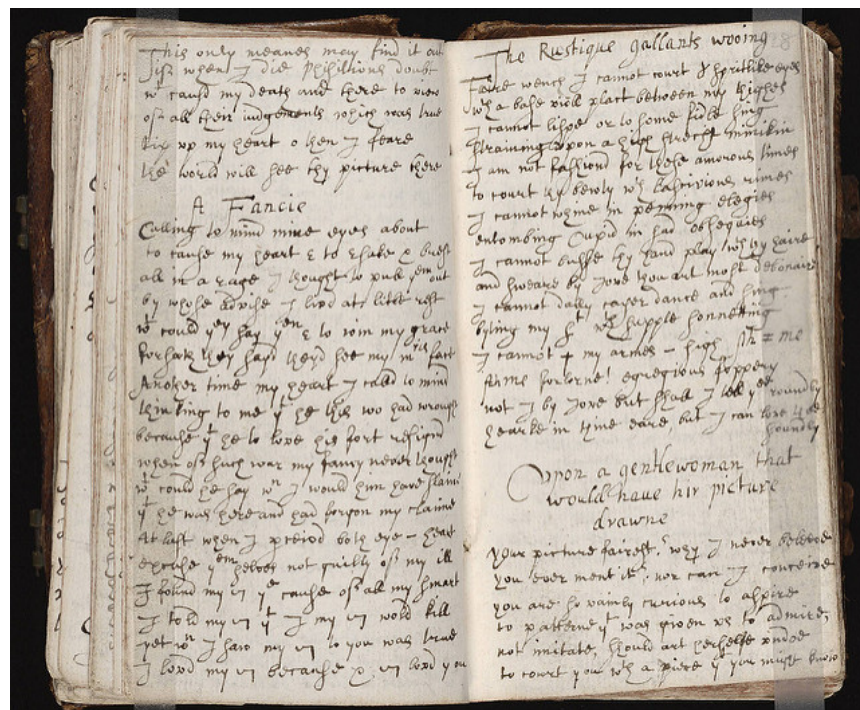 This only meanes may find it out
when I die Phisitions doubt
wt causd my death and there to view
of all their iudgements which was true
Rip up my heart o then I feare
the world will see thy picture there
A Fancie
Calling to mind mine eyes about
to cause my heart to shake &
all in a rage I thought to pull yem out
by whose advise I livd at litle rest
wt could yey say yen to win my grace
forsooth they sayd they'd see my face
Another time my heart I calld to mind
thinking to me yt he this wo had wrought
because yt he to love his fort resignd
when of such war my fancy never thought
wt could he say wn I would him have slaine
yt he was hers and had forgon my claime
At last when I perceivd both eye - heart
excuse yem selves not guilty of my ill
I found my ye cause of all my smart
I told my yt I my wold kill
yet wn I saw my to you was true
I lovd my because lovd you
28
The Rustique gallants wooing
Faire wench I cannot court thy spritlike eyes
wth a base viole plact betweene my thighes
I cannot lispe or to some fidle sing
straining upon a high stretcht minikin
I am not fashiond for these amorous times
to court thy bewty wth lascivious rimes
I cannot whine in penning elegies
entombing Cupid in sad obsequies
I cannot busse thy hand play wth thy haire
and sweare by Jove thou art most debonaire
I cannot dally caper dance and sing
oyling my st wth supple sonnetting
I cannot + my armes - sigh me
Ah me forlorne! egregious foppery
not I by Jove but shall I tell yee roundly
hearke in thine eare, but I can love thee
soundly
Upon a gentlewoman that
would have hir picture
drawne
Your picture fairest, why I never beleevd
you ever ment it, nor can I conceive
you are so vainly curious to aspire
to patterne yt was given us to admire,
not imitate, should art herselfe undoe
to court you wth a piece yt you must know